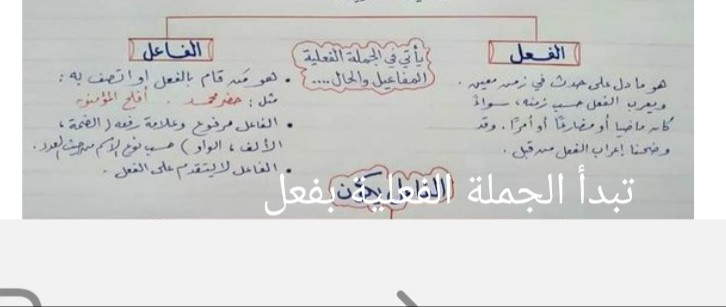 الفعل
هو ما دل على حدث في زمن معين .
ويعرب الفعل حسب زمنه ، سواءً
كان ماضيا أو مضارعًا أو أمرًا . وقد
وضحنا إعراب الفعل من قبل .
يأتي في الجملة الفعلية
المفاعيل والحال ....
الفاعل
• هو من قام بالفعل او اتصف به :
مثل : حضر محمد . أفلح المؤمنون
• الفاعل مرفوع وعلامة رفعه ( الضمة ،
الألف ، الواو ) حسب نوع الاسم من حيث العدد .
• الفاعل لا يتقدم على الفعل .
الفاعل يكون
تبدأ الجملة الفعلية بفعل